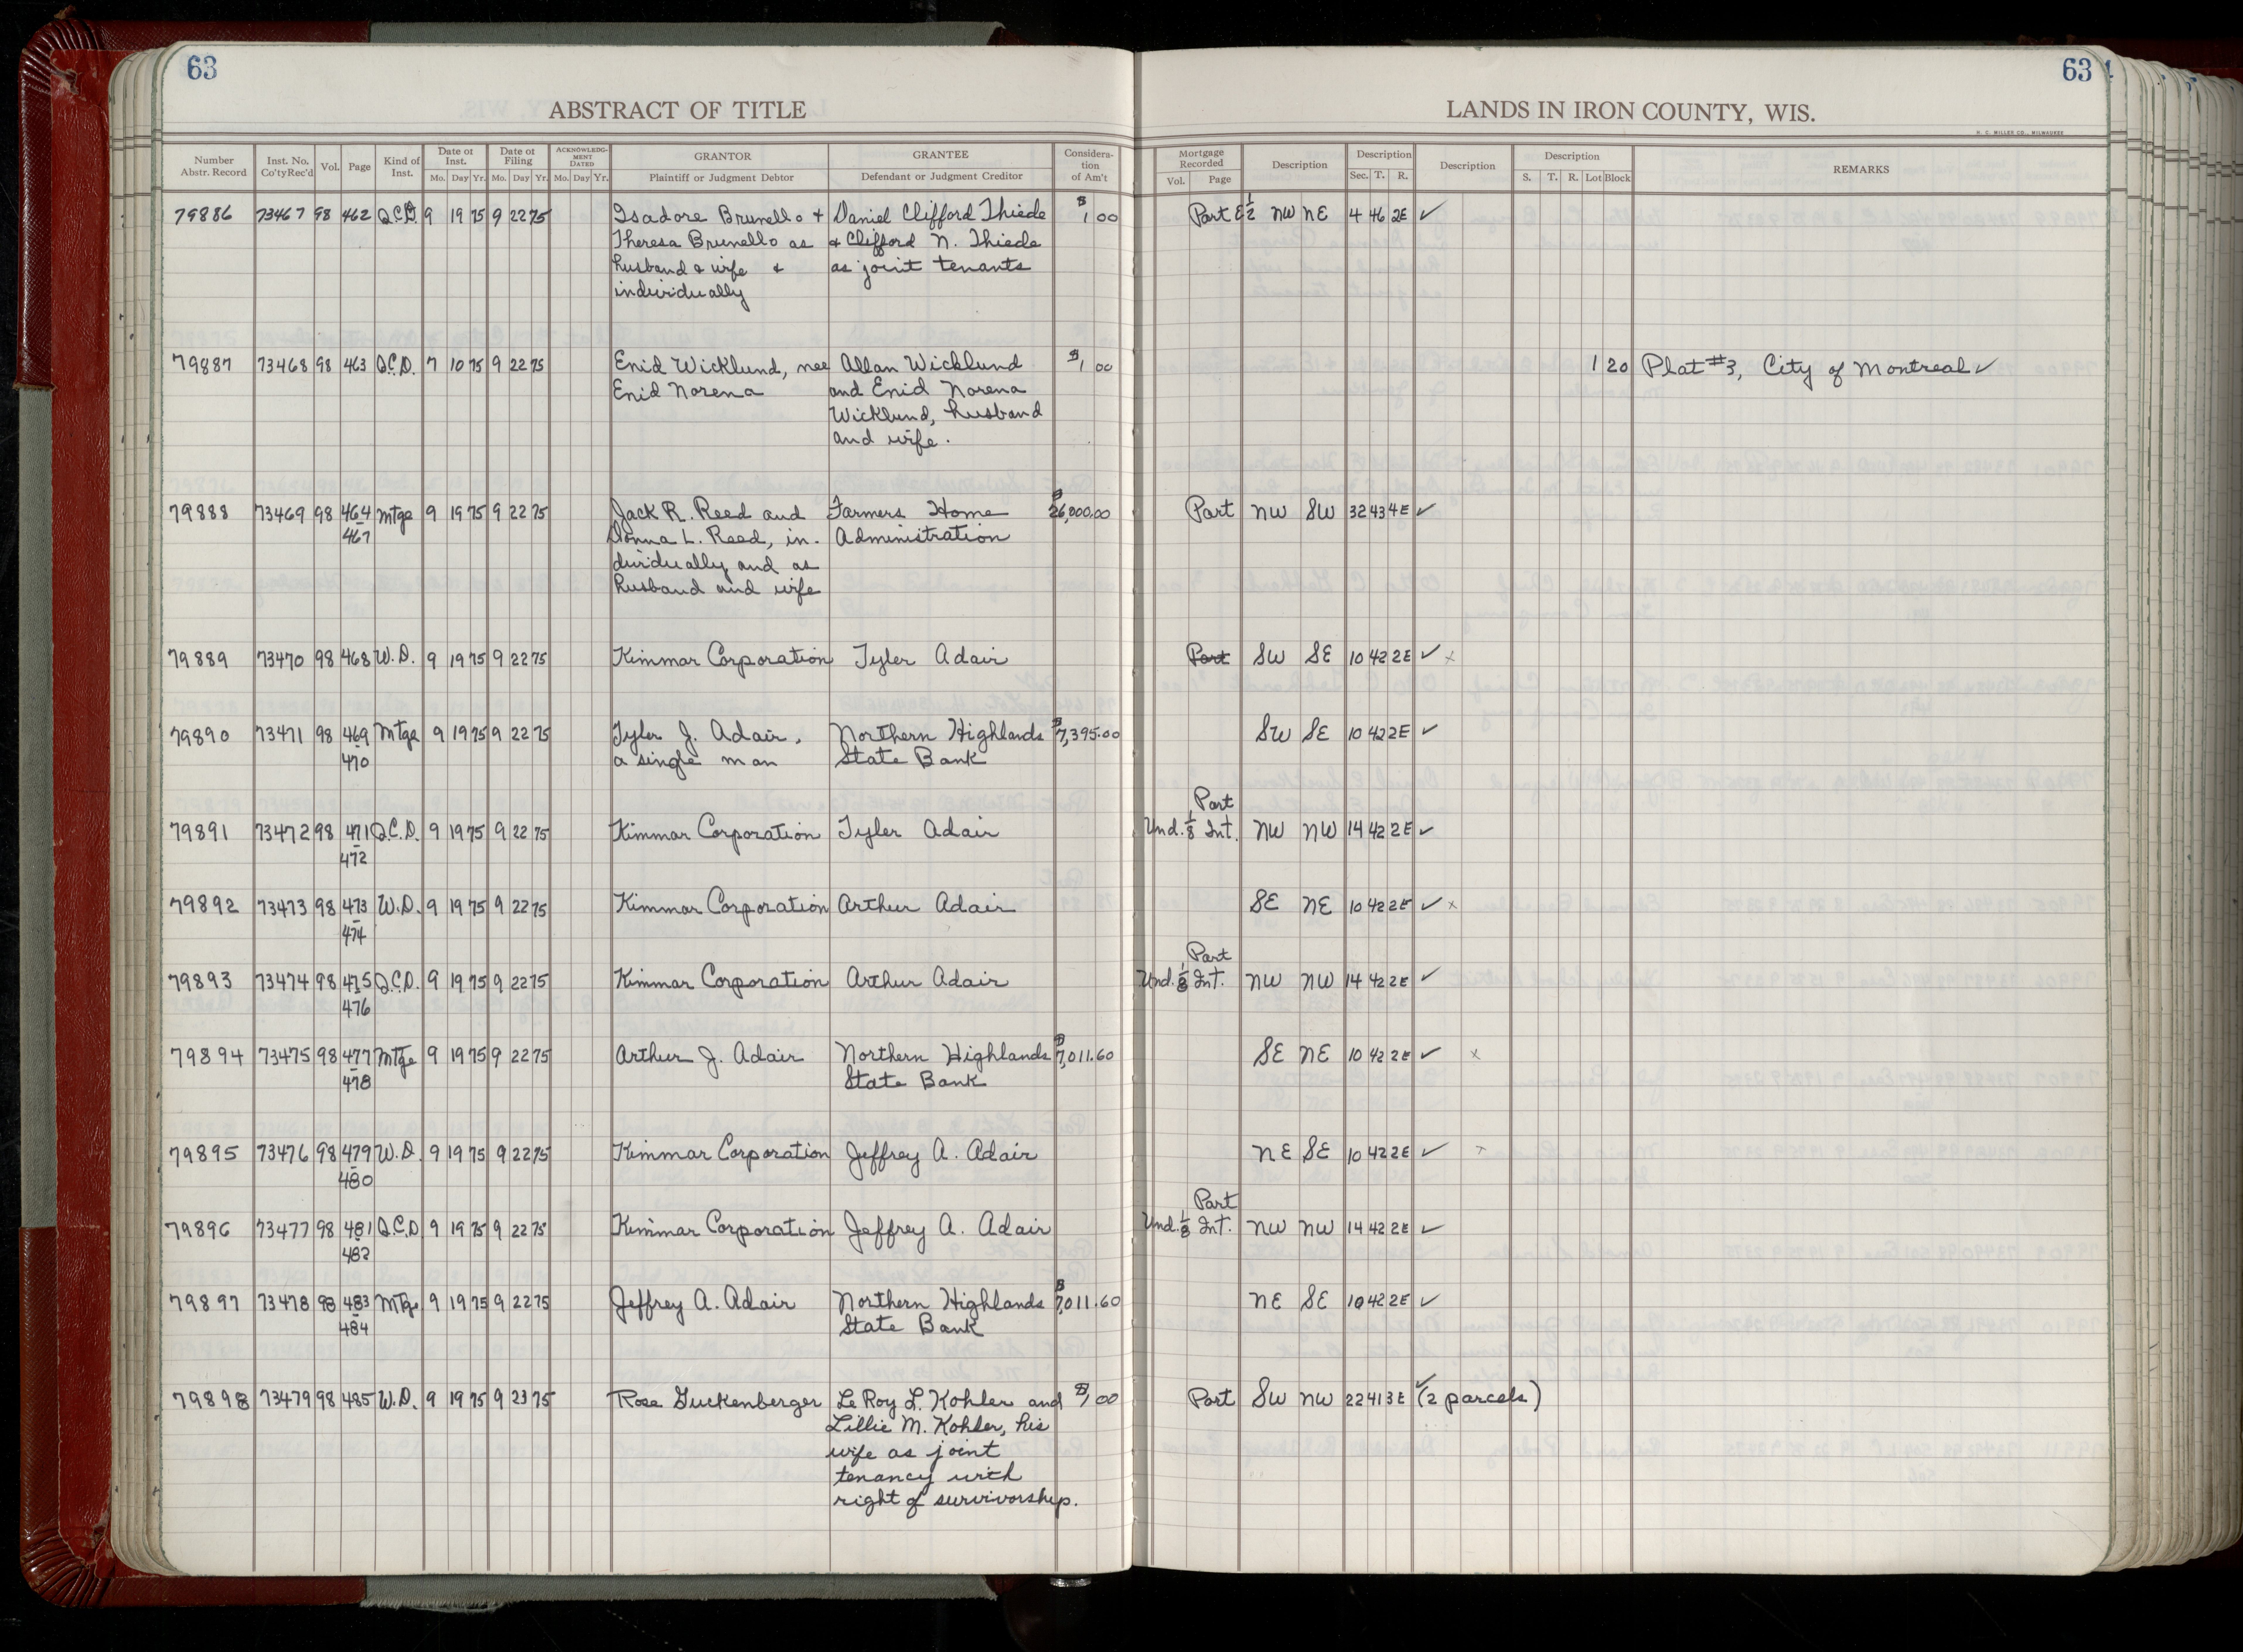 63
63
ABSTRACT OF TITLE
LANDS IN IRON COUNTY, WIS.
H. C. MILLER CO., MILWAUKEE
Number Abstr. Record Inst. No. Co'ty Rec'd Vol. Page Kind of Inst. Date of Inst. Mo. Day Yr. Date of Filing Mo. Day Yr. ACKNOWLEDGMENT DATED Mo. Day Yr. GRANTOR Plaintiff or Judgment Debtor GRANTEE Defendant or Judgment Creditor Consideration of Am't Mortgage Recorded Vol. Page Description Description Sec. T. R. Description Description S. T. R. Lot Block REMARKS
79886 73467 98 462 Q.C.D. 9 19 75 9 22 75 Isadore Brunello + Daniel Clifford Thiede $1 00 Part E ½ NW NE 4 46 2E ✓
Theresa Brunello as & Clifford N. Thiede
husband & wife & as joint tenants
individually
79887 73468 98 463 Q.C.D. 7 10 75 9 22 75 Enid Wicklund, nee Allan Wicklund $1 00 1 20 Plat #3, City of Montreal ✓
Enid Norena and Enid Norena
Wicklund, husband
and wife.
79888 73469 98 464 Mtge 9 19 75 9 22 75 Jack R. Reed and Farmers Home $26,000.00 Part NW SW 32 43 4E ✓
467 Donna L. Reed, in- Administration
dividually and as
husband and wife
79889 73470 98 468 W.D. 9 19 75 9 22 75 Kimmar Corporation Tyler Adair Part SW SE 10 42 2E ✓ x
79890 73471 98 469 Mtge 9 19 75 9 22 75 Tyler J. Adair, Northern Highlands $7,395.00 SW SE 10 42 2E ✓
470 a single man State Bank
Part
79891 73472 98 471 Q.C.D. 9 19 75 9 22 75 Kimmar Corporation Tyler Adair Und. 1/8 Int. NW NW 14 42 2E ✓
472
79892 73473 98 473 W.D. 9 19 75 9 22 75 Kimmar Corporation Arthur Adair SE NE 10 42 2E ✓ x
474
Part
79893 73474 98 475 Q.C.D. 9 19 75 9 22 75 Kimmar Corporation Arthur Adair Und. 1/8 Int. NW NW 14 42 2E ✓
476
79894 73475 98 477 Mtge 9 19 75 9 22 75 Arthur J. Adair Northern Highlands $7,011.60 SE NE 10 42 2E ✓ x
478 State Bank
79895 73476 98 479 W.D. 9 19 75 9 22 75 Kimmar Corporation Jeffrey A. Adair NE SE 10 42 2E ✓ x
480
Part
79896 73477 98 481 Q.C.D 9 19 75 9 22 75 Kimmar Corporation Jeffrey A. Adair Und. 1/8 Int. NW NW 14 42 2E ✓
482
79897 73478 98 483 Mtge 9 19 75 9 22 75 Jeffrey A. Adair Northern Highlands $7,011.60 NE SE 10 42 2E ✓
484 State Bank
79898 73479 98 485 W.D. 9 19 75 9 23 75 Rose Guckenberger LeRoy L. Kohler and $1,00 Part SW NW 22 41 3E ✓ (2 parcels)
Lillie M. Kohler, his
wife as joint
tenancy with
right of survivorship.